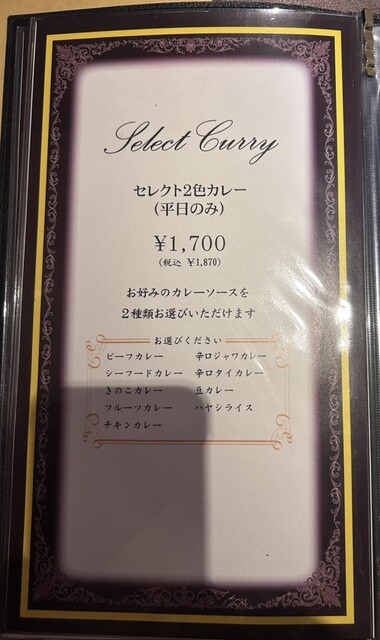 Select Curry
セレクト2色カレー
(平日のみ)
¥1,700
(税込 ¥1,870)
お好みのカレーソースを
2種類お選びいただけます
お選びください
ビーフカレー 辛口ジャワカレー
シーフードカレー 辛口タイカレー
きのこカレー 豆カレー
フルーツカレー ハヤシライス
チキンカレー